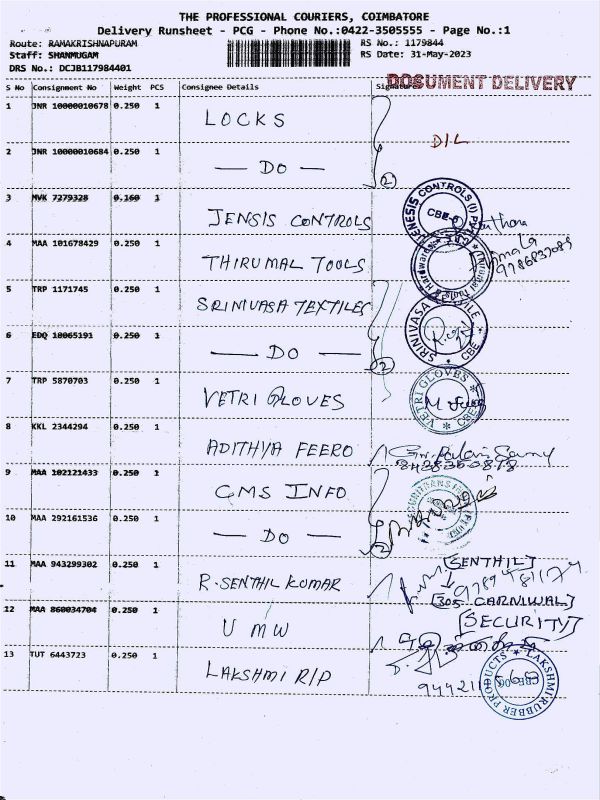 THE PROFESSIONAL COURIERS, COIMBATORE
Delivery Runsheet - PCG - Phone No.:0422-3505555 - Page No.:1
Route: RAMAKRISHNAPURAM
RS No.: 1179844
Staff: SHANMUGAM
RS Date: 31-May-2023
DRS No.: DCJB117984401
DOSUMENT DELIVERY
S No Consignment No Weight PCS Consignee Details Signature
1 JNR 10000010678 0.250 1 LOCKS
DIL
2 JNR 10000010684 0.250 1 — DO — 2
3 MVK 7279328 0.160 1 JENSIS CONTROLS
JENESIS CONTROLS (I) CBE-6
4 MAA 101678429 0.250 1 THIRUMAL TOOLS
Thirumal Tools & Hardwares
5 TRP 1171745 0.250 1 SRINIVASA TEXTILES
SRINIVASA TEXTILE CBE
6 EDQ 18065191 0.250 1 — DO — 2
7 TRP 5870703 0.250 1 VETRI GLOVES
VETRI GLOVES CBE
8 KKL 2344294 0.250 1 ADITHYA FEERO
8428360878
9 MAA 102121433 0.250 1 GMS INFO
10 MAA 292161536 0.250 1 — DO — 2
11 MAA 943299302 0.250 1 R. SENTHIL KUMAR
[SENTHIL]
[305 CARNIWAL]
12 MAA 860034704 0.250 1 U M W
[SECURITY]
13 TUT 6443723 0.250 1 LAKSHMI R/P
LAKSHMI RUBBER PRODUCTS